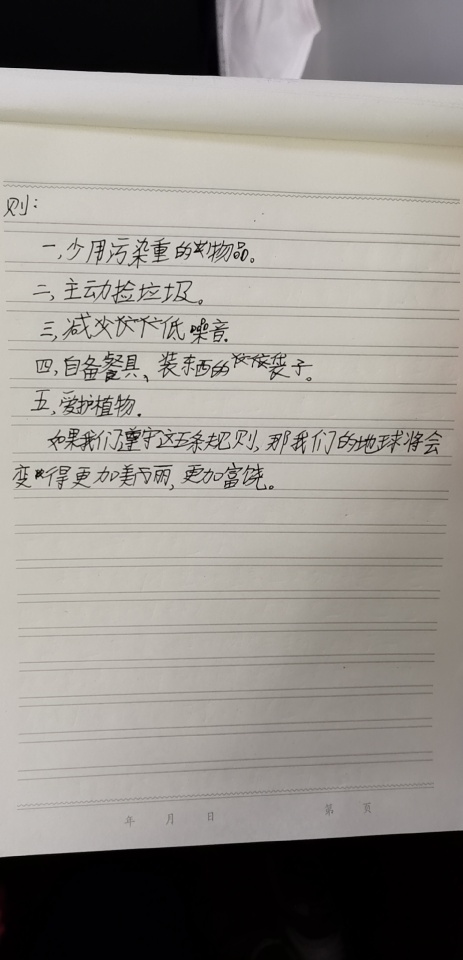 则：
一,少用污染重的物品。
二,主动捡垃圾。
三,减低噪音.
四,自备餐具、装东西的袋子。
五,爱护植物.
如果我们遵守这五条规则,那我们的地球将会
变得更加美丽,更加富饶。
年 月 日 第 页